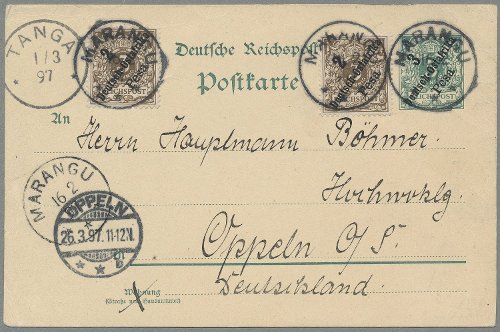 TANGA 1/3 97
MARANGU
2 Pesa
REICHSPOST
MARANGU
2 Pesa
REICHSPOST
MARANGU
3 Pesa
Deutsche Reichspost
Postkarte
An
Herrn Hauptmann Böhmer
Hochwohlg.
Oppeln O/S.
Deutschland.
MARANGU
16 2
OPPELN
26.3.97. 11-12V.
Wohnung
(Straße und Hausnummer)